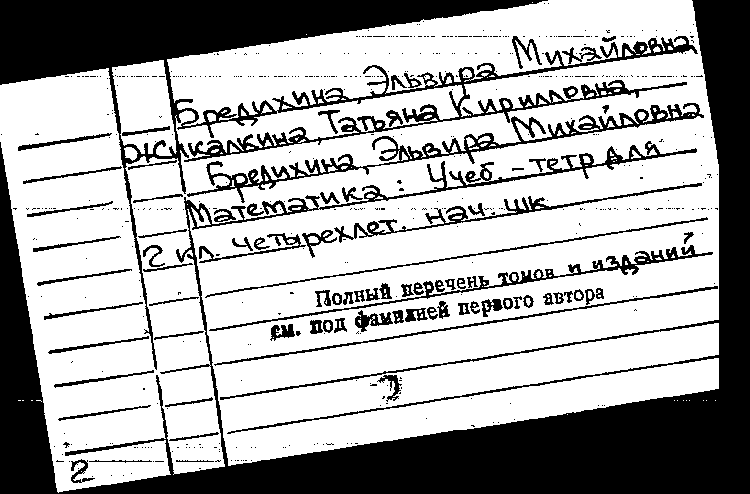 Бредихина, Эльвира Михайловна
Жикалкина, Татьяна Кирилловна,
Бредихина, Эльвира Михайловна
Математика: Учеб.-тетр для
2 кл. четырехлет. нач. шк
Полный перечень томов и изданий
см. под фамилией первого автора
2